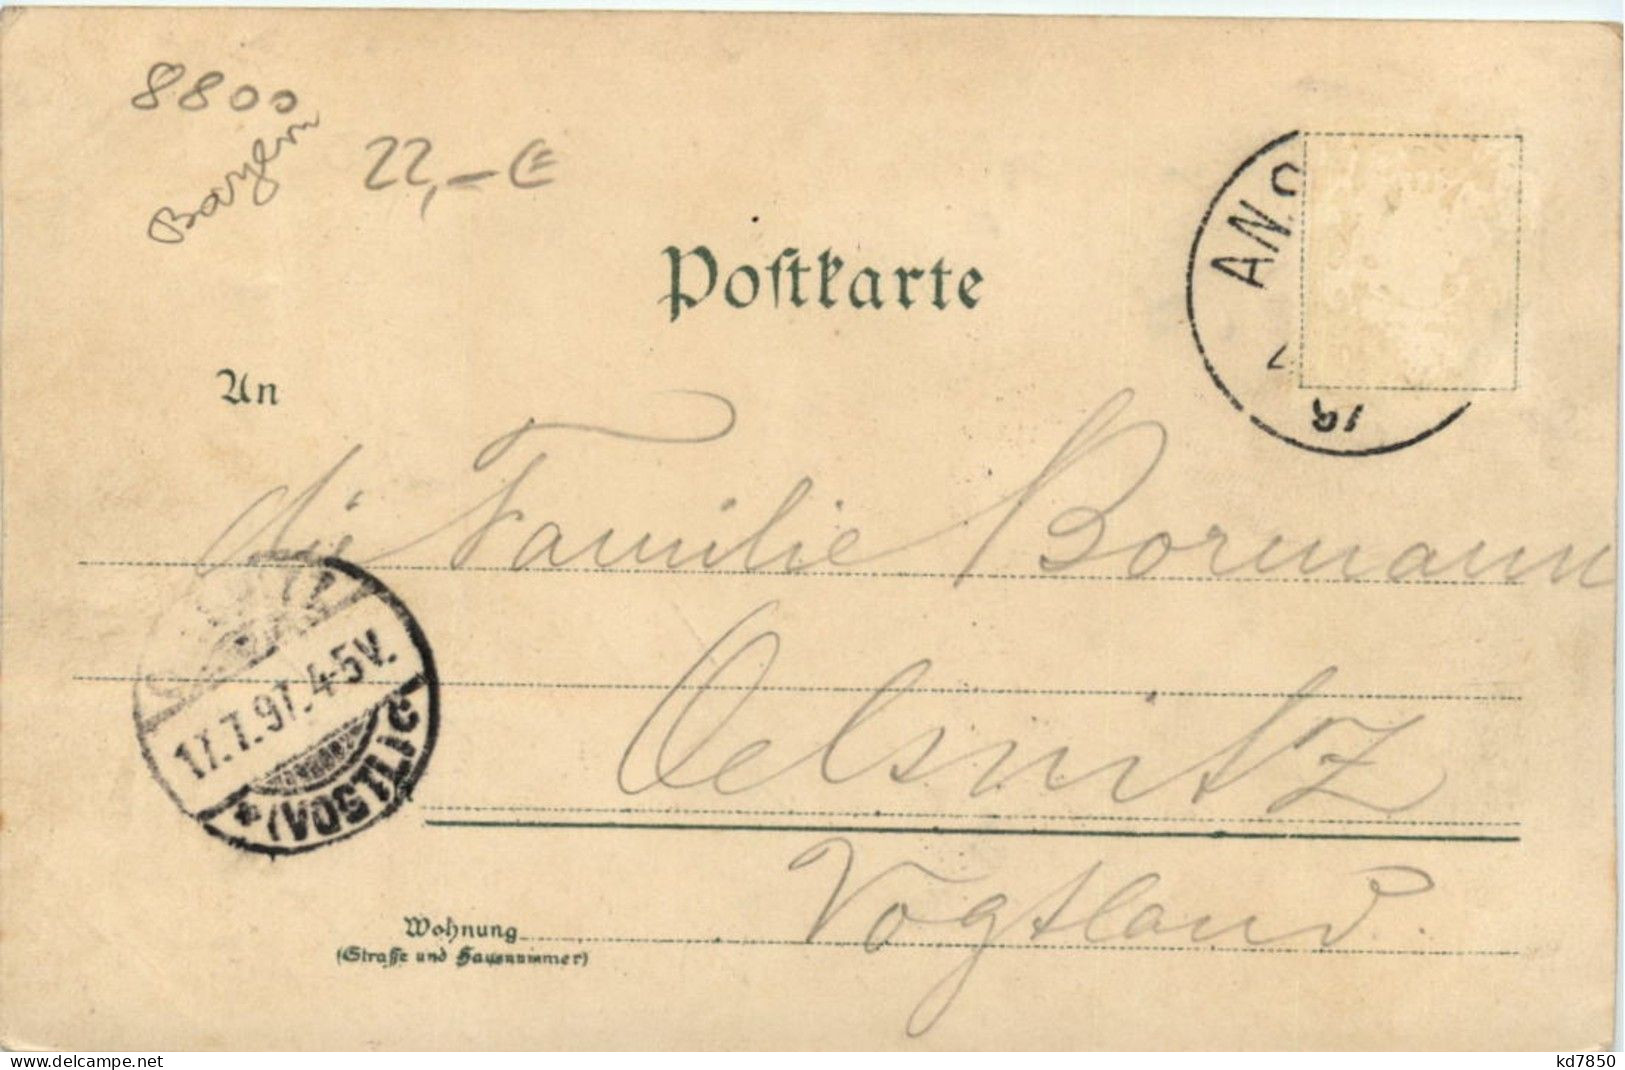 8800
Bayern
22,-€
Postkarte
ANS
An
die Familie Bormann
Oelsnitz
17.7.97. 4-5V.
Vogtland.
Wohnung
(Straße und Hausnummer)
www.delcampe.net
kd7850